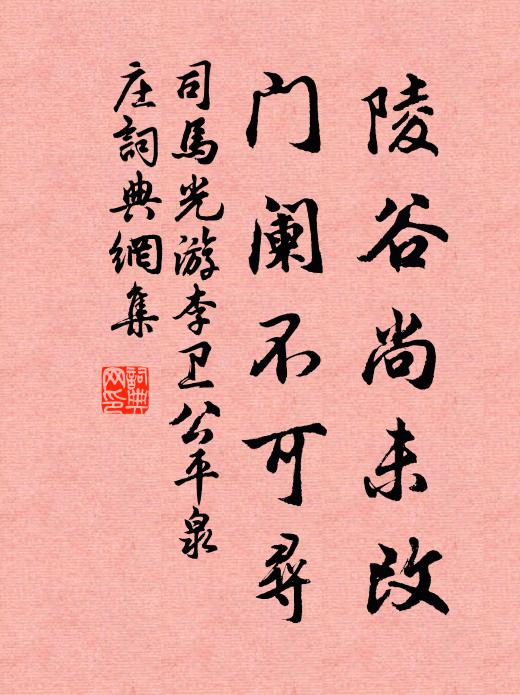 陵谷尚未改
门阑不可寻
司马光游李卫公平泉
庄词典網集
詞典網印